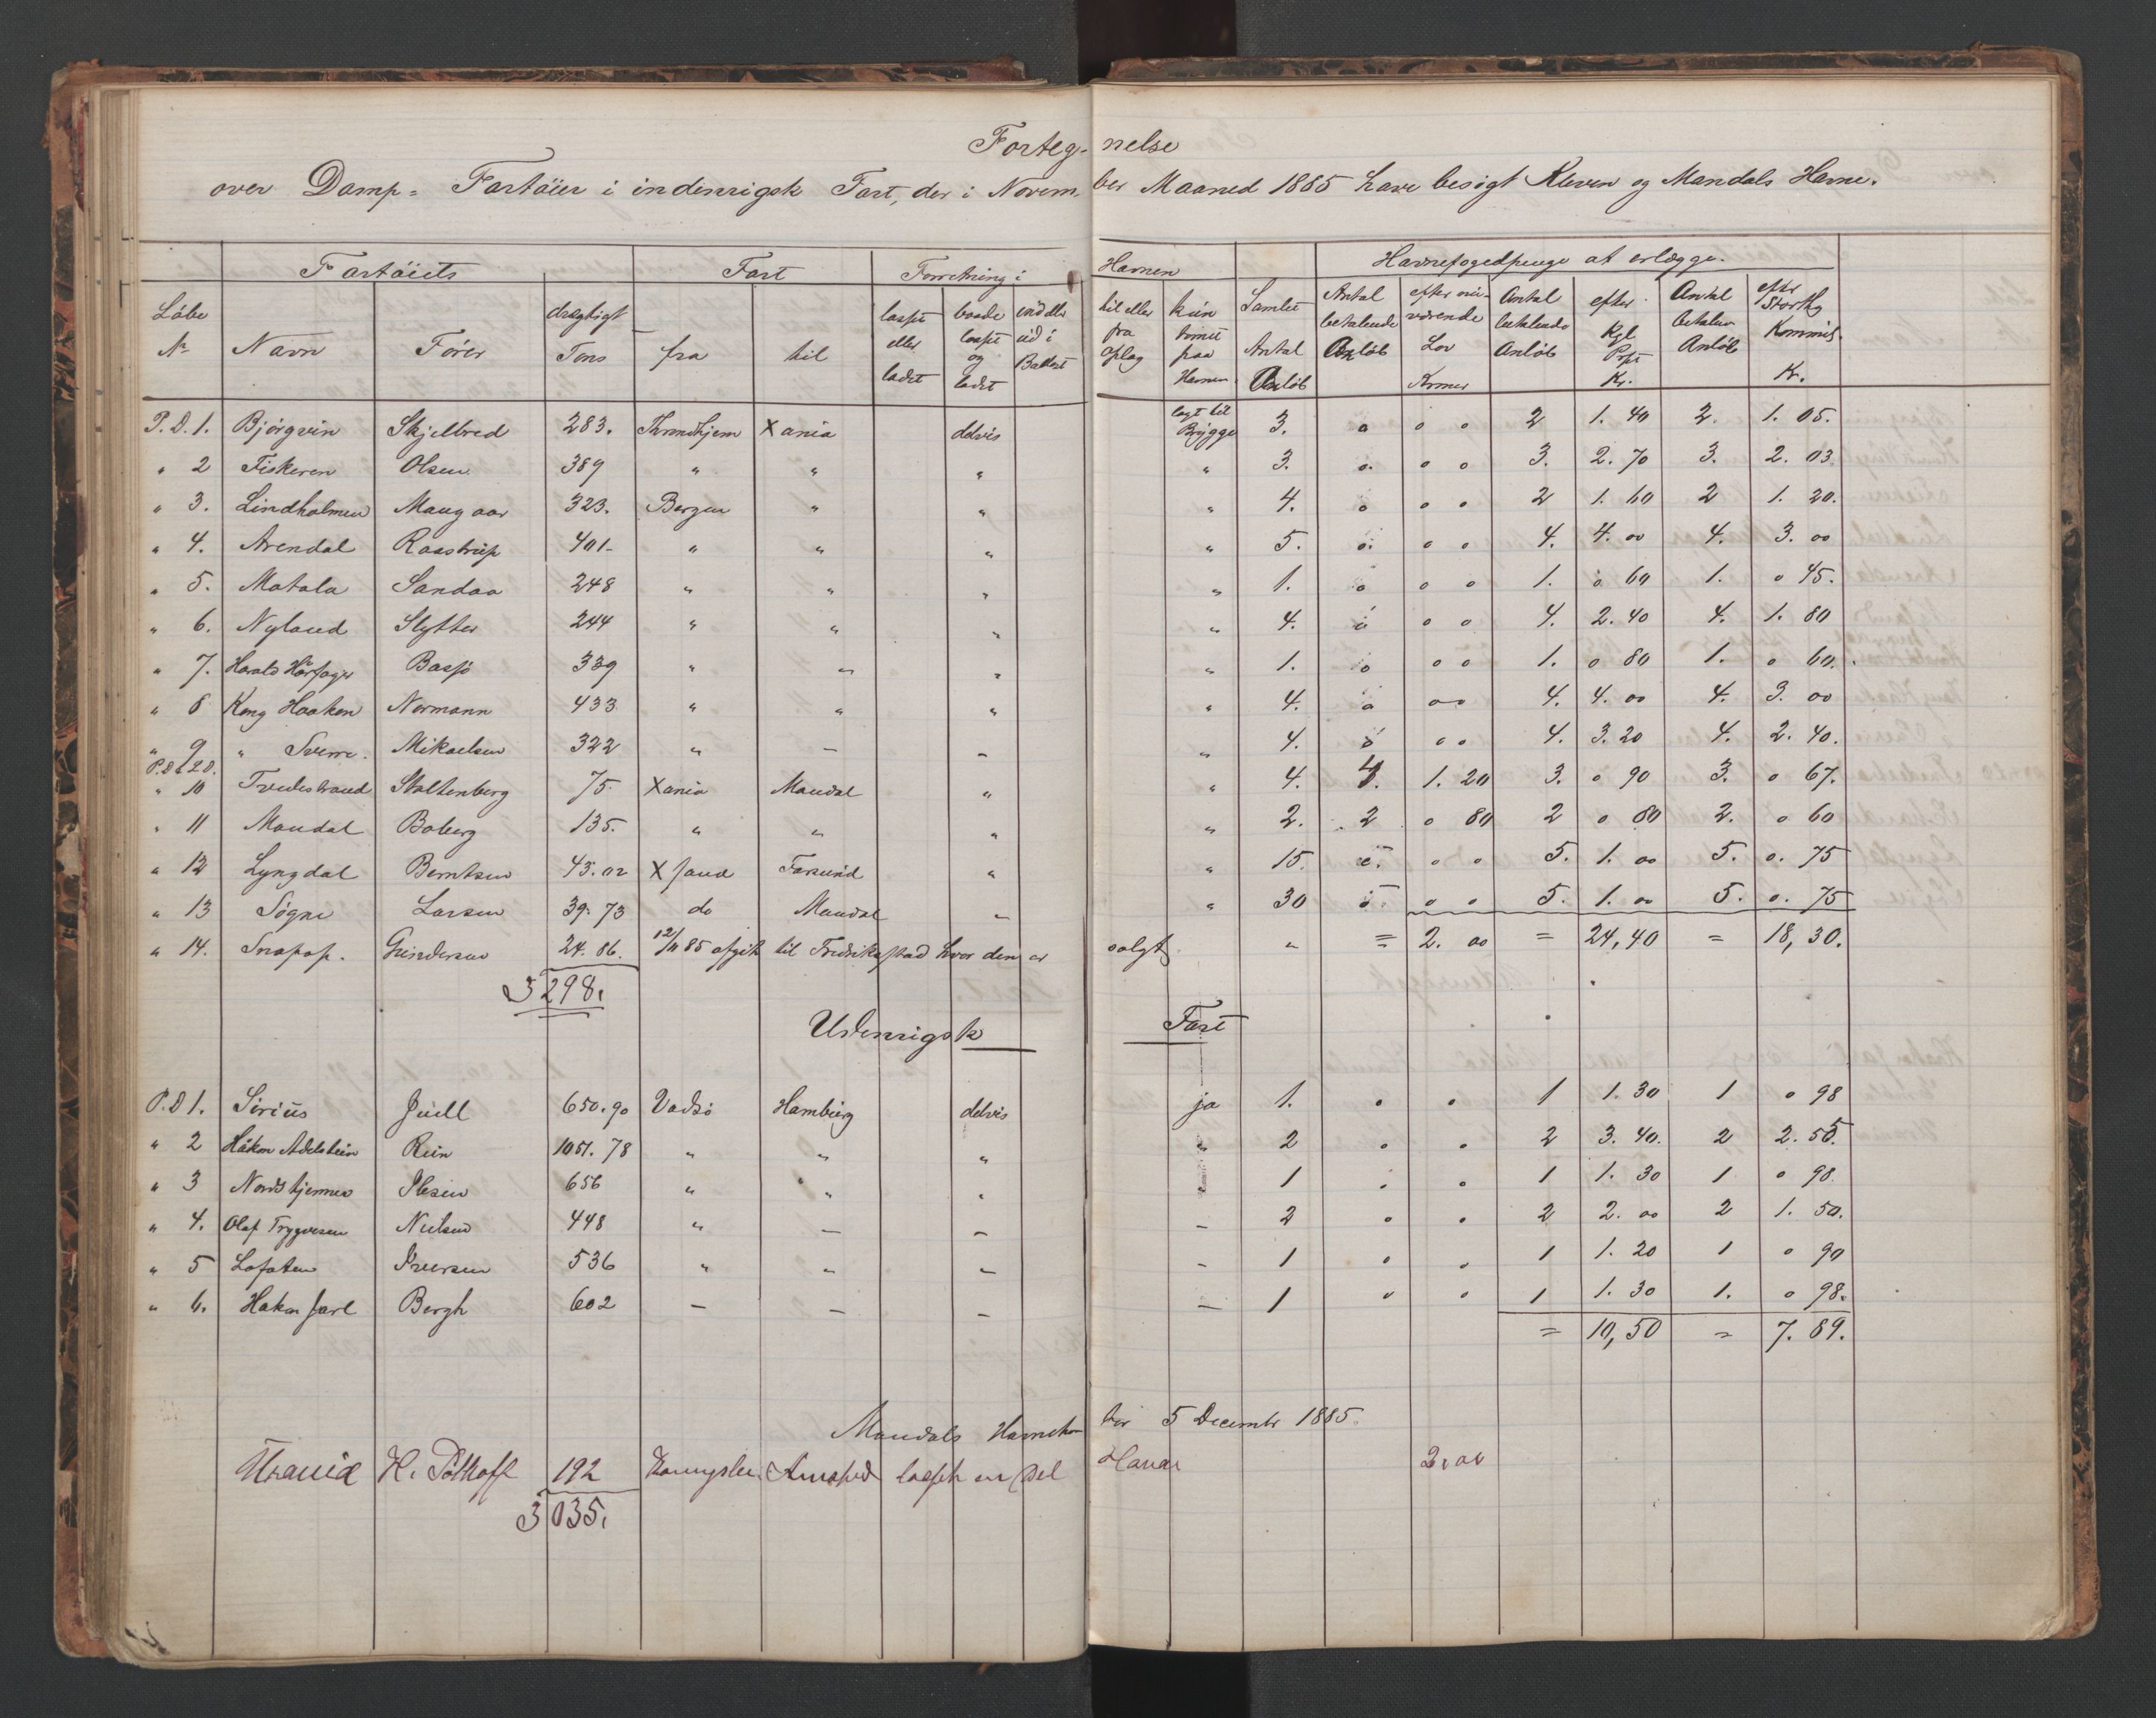 Forteg- nelse
over Damp= Fartöier i indenrigsk Fart, der i Novem- ber Maaned 1885 have besögt Kleven og Mandals Havne.
Fartöiets Fart Forretning i Havnen Havnefogedpenge at erlægge.
Löbe No Navn Förer drægtigt Tons fra til losset eller ladet baade losset og ladet ind eller ud i Ballast til eller fra Oplag kun Havnen Samlet Antal Anlöb Antal betalende Anlöb efter nu- værende Lov Kroner Antal betalende Anlöb efter Kgl Prpt Kr. Antal betalen Anlöb efter Storth Kommis. Kr.
P.D. 1. Björgvin Skjelbred 283. Throndhjem Xania delvis lagt til Brygge 3. o o o 2 1. 40 2. 1. 05.
" 2 Fiskeren Olsen 389 " " " " 3. o. o o 3. 2. 70 3. 2. 03
" 3. Lindholmen Maugaar 323. Bergen " " " 4. o o o 2 1. 60 2 1. 20.
" 4. Arendal Raastrup 401- " " " " 5. o. o o 4. 4. 00 4. 3. 00
" 5. Motala Sandaa 248 " " " " 1. o o o 1. o 60 1. o 45.
" 6. Nyland Slytter 244 " " " " 4. o o o 4. 2. 40 4. 1. 80
" 7. Harald Hårfager 339 " " " " 1. o o o 1. o 80 1. o 60.
" 8 Kong Haakon Normann 433 " " " " 4. o o o 4. 4. 00 4. 3. 00
" 9 " Sverre. Mikaelsen 322 " — — " 4. o o o 4. 3. 20 4. 2. 40.
P.D. & L.D.
" 10 Tvedestrand Stoltenberg 75. Xania Mandal " " 4. 4. 1. 20 3. o 90 3. o 67.
" 11 Mandal Boberg 135. " " " " 2. 2 o 80 2 o 80 2. o 60
" 12 Lyngdal Berntsen 43. 02 Xsand Farsund " " 15. o. o o 5. 1. 00 5. o. 75
" 13 Sögne Larsen 39. 73 do Mandal " " 30 o o o 5. 1. 00 5. o. 75
" 14. Grindersen 24. 86. 12/11 85 afgik til Fredrikstad hvor den er solgt " = 2. 00 = 24,40 = 18, 30.
3298.
Udenrigsk Fart
P.D 1. Sirius Juell 650. 90 Vadsö Hamburg delvis ja 1. o o 1 1. 30 1 o 98
" 2 Håkon Adelstein Rein 1051. 78 " " " " 2 o o 2 3. 40. 2 2. 55.
" 3 Nordstjernen Ibsen 656 " " " " 1 o o 1 1. 30 1 o 98.
" 4. Olaf Trygvesen Nielsen 448 " — — — 2 o o 2 2. 00 2 1. 50.
" 5 Lofoten Iversen 536 " " — — 1 o o 1 1. 20 1 o 90
" 6. Hakon Jarl Bergh 602 — — — — 1 o o 1 1. 30 1. o 98.
= 10,50 = 7. 89.
Mandals Havnekon tor 5 Decembr 1885.
Urania H. Potthoff 192 en Del
3035.